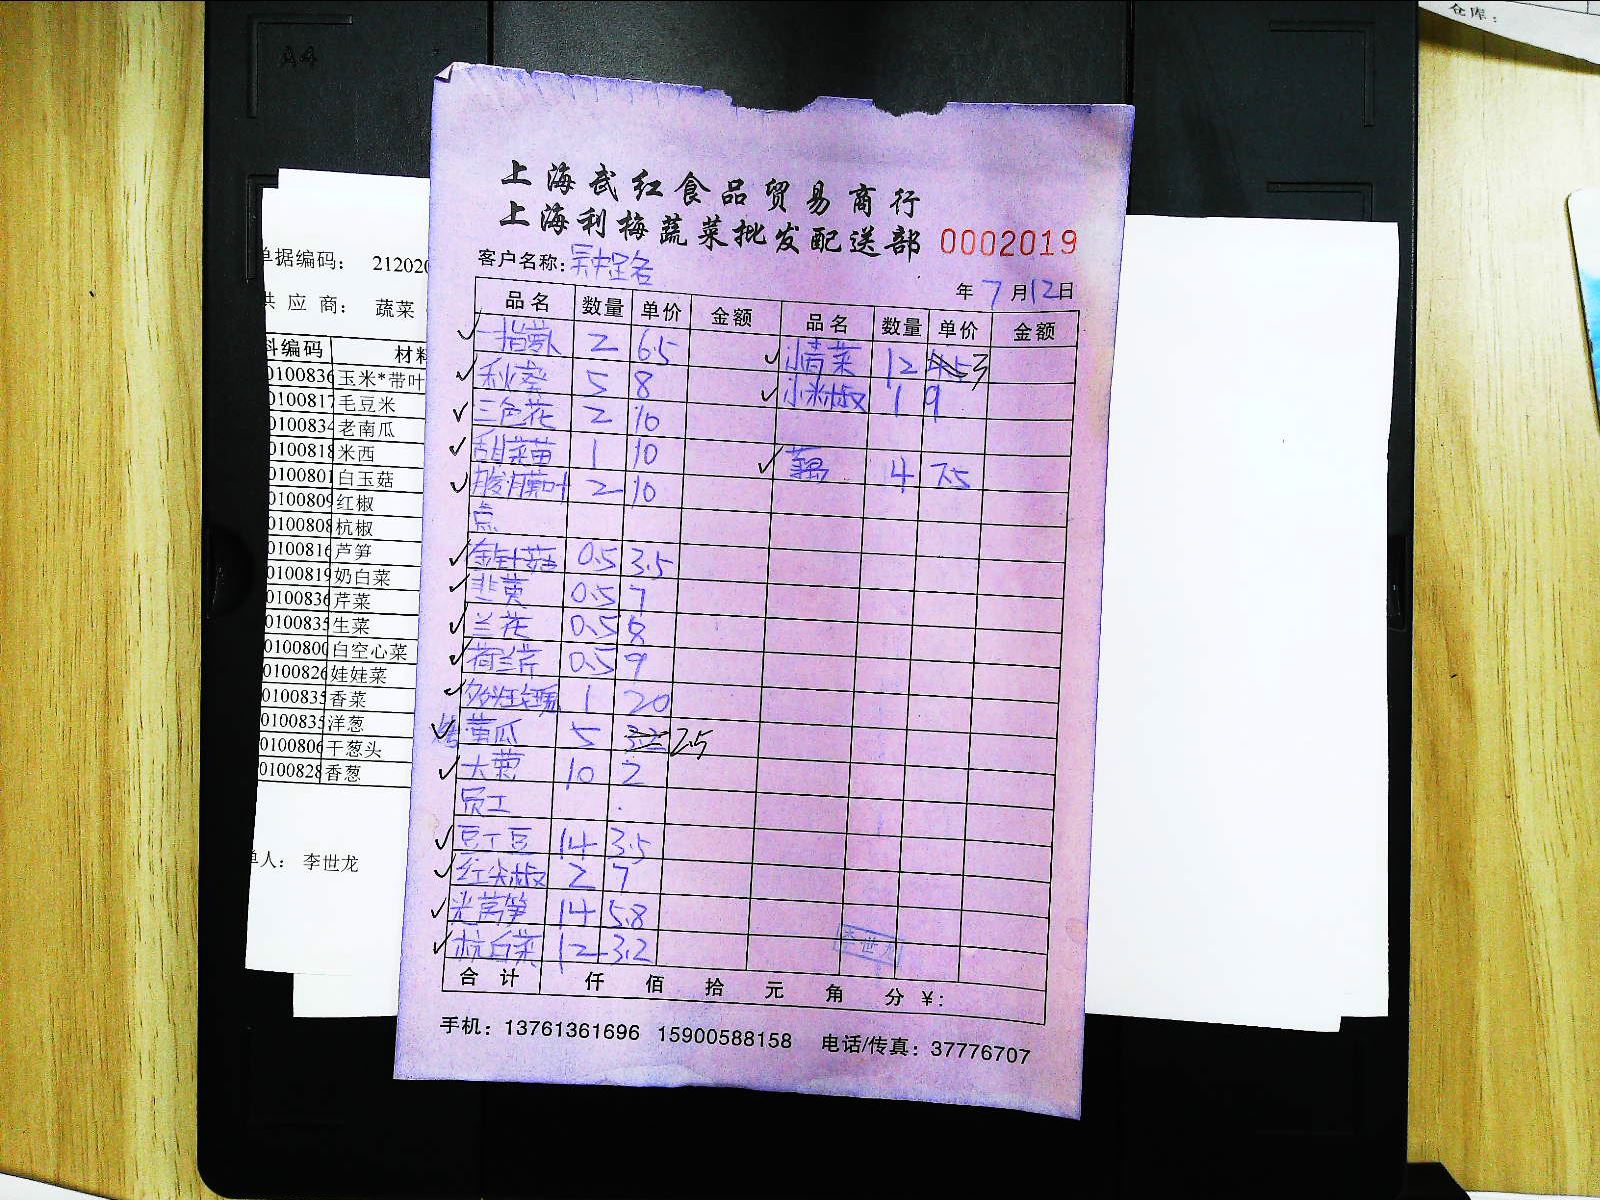 仓库：
A4
上海武红食品贸易商行
上海利梅蔬菜批发配送部 0002019
客户名称：
年 7 月 12 日
品名 数量 单价 金额 品名 数量 单价 金额
一指萝卜 2 6.5 小青菜 12 3
秋葵 5 8 小米椒 1 9
三色花 2 10
甜菜苗 1 10 藕 4 7.5
酸膜叶 2 10
点
金针菇 0.5 3.5
韭黄 0.5 7
兰花 0.5 8
荷兰芹 0.5 9
1 20
黄瓜 5 2.5
大葱 10 2
员工
豆丁豆 14 3.5
红尖椒 2 7
光莴笋 14 5.8
杭白菜 12 3.2
合计 仟 佰 拾 元 角 分 ¥:
手机：13761361696 15900588158 电话/传真：37776707
单据编码： 212020
供应商： 蔬菜
料编码 材料
0100836 玉米*带叶
0100817 毛豆米
0100834 老南瓜
0100818 米西
0100801 白玉菇
0100809 红椒
0100808 杭椒
0100816 芦笋
0100819 奶白菜
0100836 芹菜
0100835 生菜
0100800 白空心菜
0100826 娃娃菜
0100835 香菜
0100835 洋葱
0100806 干葱头
0100828 香葱
单人： 李世龙